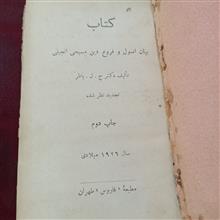 کتاب
بیان اصول و فروع دین مسیحی انجیلی
تألیف دکتر ج . ل . پاطر
تجدید نظر شده
چاپ دوم
سال ۱۹۲۶ میلادی
مطبعهٔ «فاروس» طهران